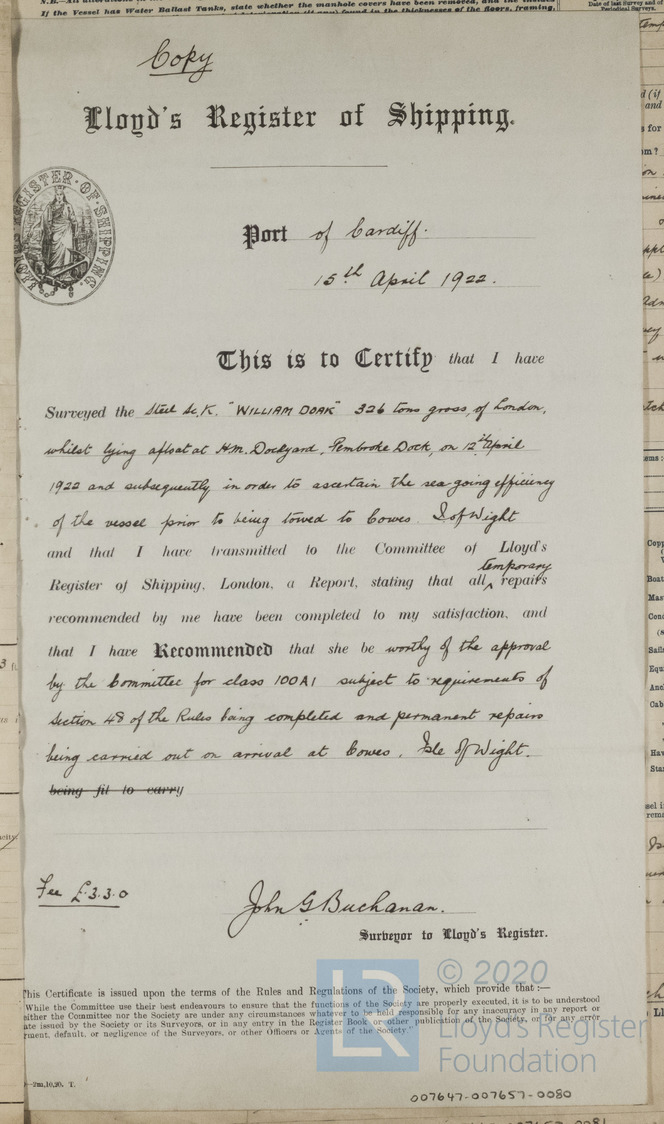 N.B.—All alterations in the
whether the manhole covers have been removed, and the
If the Vessel has Water Ballast Tanks, state
found in the thicknesses of the floors, framing,
Date of last Survey and of
Periodical Surveys.
Copy
Lloyd's Register of Shipping.
LLOYD'S REGISTER OF SHIPPING.
Port of Cardiff.
15th April 1922.
This is to Certify that I have
Surveyed the Steel Sc.K. "WILLIAM DOAK" 326 tons gross, of London,
whilst lying afloat at H.M. Dockyard, Pembroke Dock, on 12th April
1922 and subsequently in order to ascertain the sea going efficiency
of the vessel prior to being towed to Cowes. I. of Wight
and that I have transmitted to the Committee of Lloyd's
temporary
Register of Shipping, London, a Report, stating that all repairs
recommended by me have been completed to my satisfaction, and
that I have Recommended that she be worthy of the approval
by the Committee for class 100A1 subject to requirements of
Section 48 of the Rules being completed and permanent repairs
being carried out on arrival at Cowes, Isle of Wight.
being fit to carry
Fee £3.3.0
John G Buchanan.
Surveyor to Lloyd's Register.
This Certificate is issued upon the terms of the Rules and Regulations of the Society, which provide that :—
While the Committee use their best endeavours to ensure that the functions of the Society are properly executed, it is to be understood
either the Committee nor the Society are under any circumstances whatever to be held responsible for any inaccuracy in any report or
ate issued by the Society or its Surveyors, or in any entry in the Register Book or other publication of the Society, or for any error
rment, default, or negligence of the Surveyors, or other Officers or Agents of the Society."
—2m,10,20. T.
LR
© 2020
Lloyd's Register
Foundation
007647-007657-0080